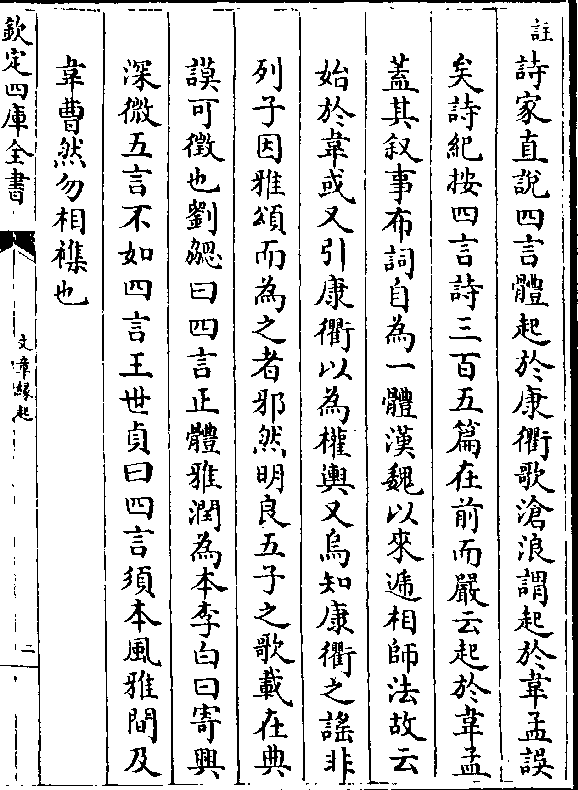 註詩家直說四言體起於康衢歌滄浪謂起於韋孟誤
矣詩紀按四言詩三百五篇在前而嚴云起於韋孟
蓋其叙事布詞自為一體漢魏以來遞相師法故云
始於韋或又引康衢以為權輿又烏知康衢之謡非
列子因雅頌而為之者邪然明良五子之歌載在典
謨可徵也劉勰曰四言正體雅潤為本李白曰寄興
深微五言不如四言王世貞曰四言須本風雅間及
韋曹然勿相襍也
欽定四庫全書
文章緣起
二